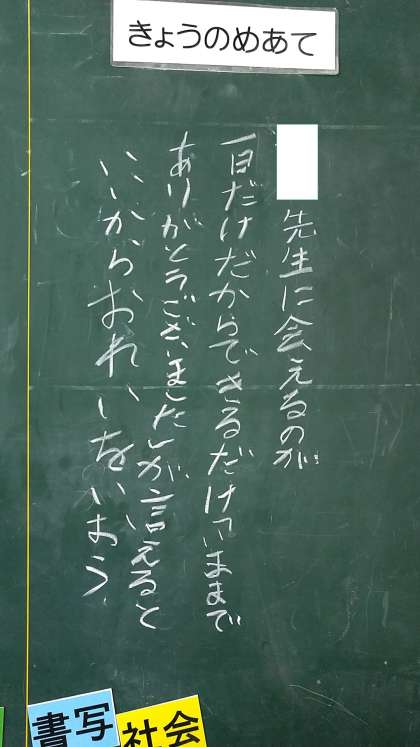 きょうのめあて
先生に会えるのが
一日だけだからできるだけいままで
ありがとうございましたが言えると
いいからおれいをいおう
書写
社会